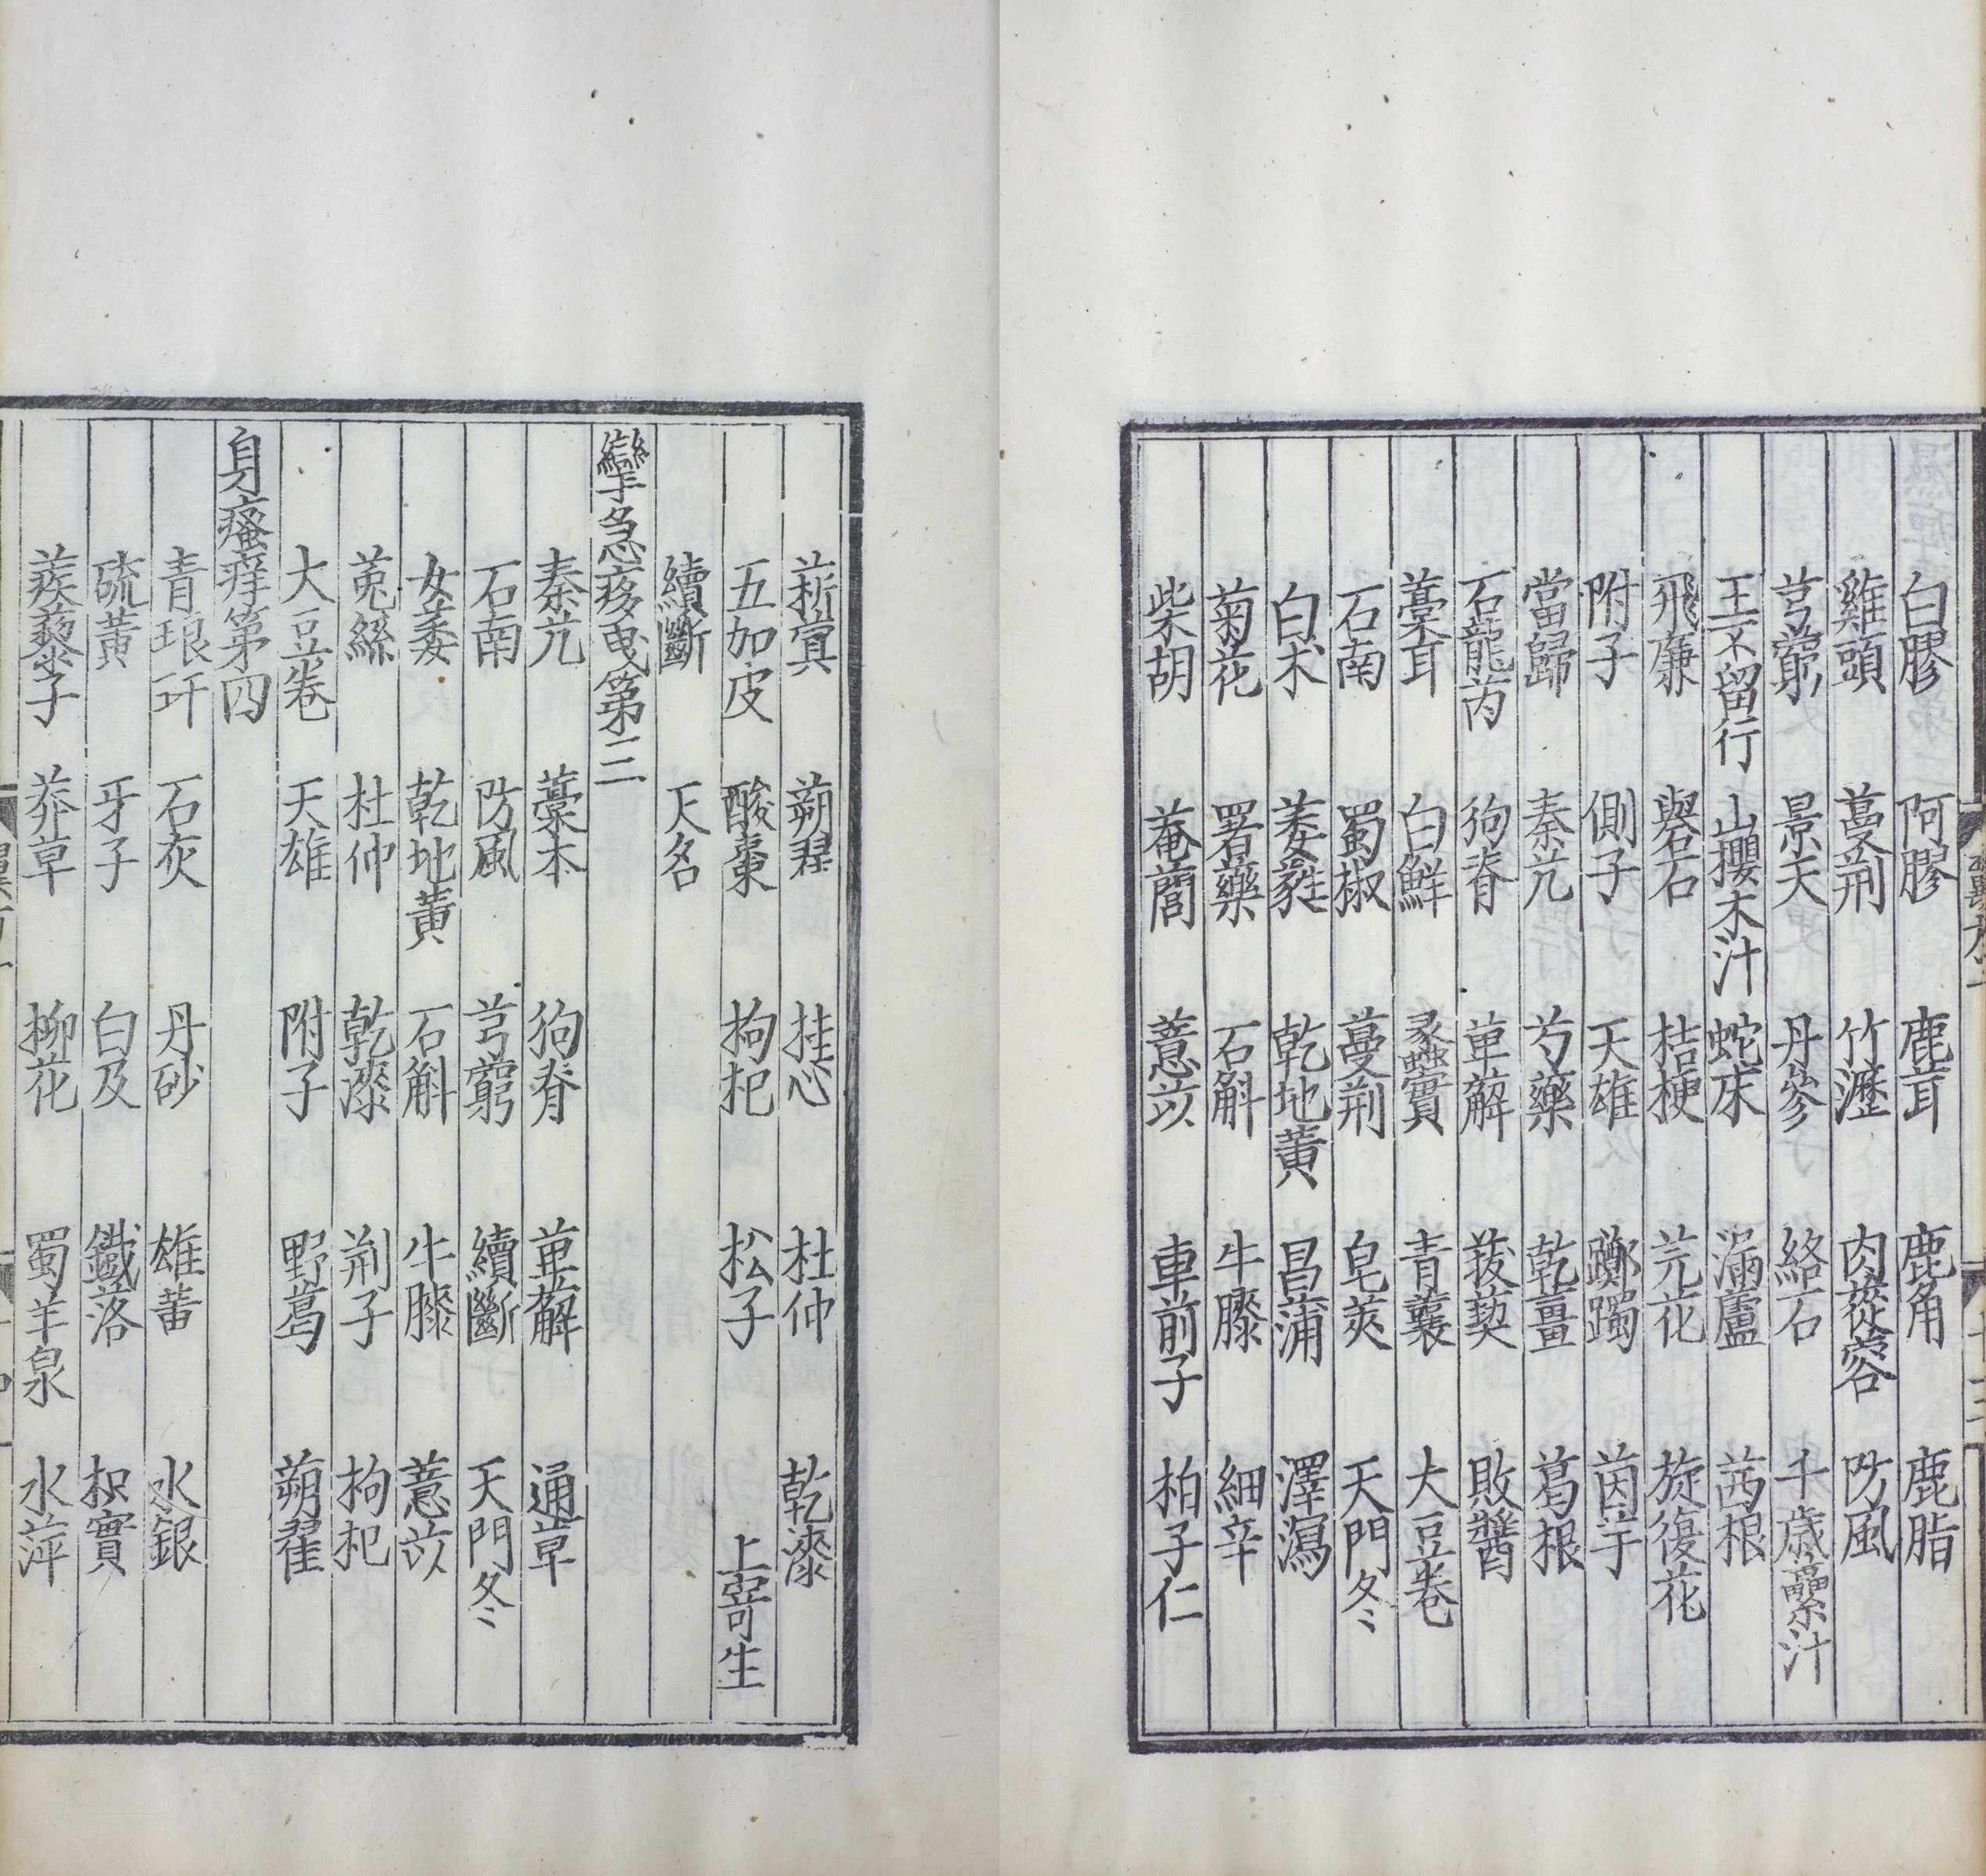 白膠 阿膠 鹿茸 鹿角 鹿脂
雞頭 蔓荆 竹瀝 肉蓯蓉 防風
芎藭 景天 丹參 絡石 千歲蘽汁
王不留行 山櫻木汁 蛇床 漏蘆 茜根
飛廉 礜石 桔梗 芫花 旋復花
附子 側子 天雄 躑躅 茵芋
當歸 秦艽 芍藥 乾薑 葛根
石龍芮 狗脊 萆薢 菝葜 敗醬
葈耳 白鮮 蠡實 青蘘 大豆卷
石南 蜀椒 蔓荆 皂莢 天門冬
白朮 萎蕤 乾地黃 昌蒲 澤瀉
菊花 署藥 石斛 牛膝 細辛
柴胡 菴䕡 薏苡 車前子 柏子仁
菥蓂 蒴藋 桂心 杜仲 乾漆
五加皮 酸棗 枸杞 松子 上寄生
續斷 天名
攣急痑曳第三
秦艽 藁本 狗脊 萆薢 通草
石南 防風 芎藭 續斷 天門冬
女萎 乾地黃 石斛 牛膝 薏苡
菟絲 杜仲 乾漆 荆子 枸杞
大豆卷 天雄 附子 野葛 蒴藋
身瘙痒第四
青琅玕 石灰 丹砂 雄黃 水銀
硫黃 牙子 白及 鐵落 枳實
蒺藜子 莽草 柳花 蜀羊泉 水萍